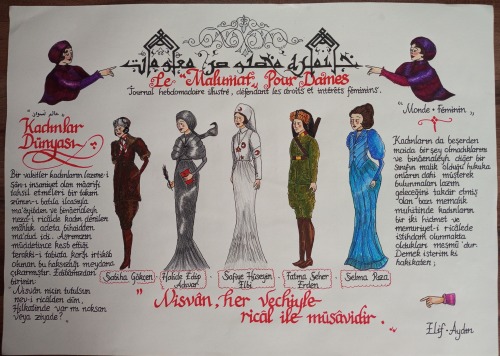 Le "Malumat" Pour Dames
Journal hebdomadaire illustré, défendant les droits et intérêts féminins.
"عالم نسوان"
Kadınlar
Dünyası
Bir vakitler kadınların lazıme-i
şân-ı insaniyet olan maârifi
tahsil etmeleri bir takım
zünun-ı batıla ilcasıyla
ma'âyibden ve binâenaleyh
nezd-i ricâlde kadın denilen
mahluk adeta bihaiden
ma'dud idi. Asrımızın
müddetince kesb ettiği
terakki-i tabiata karşı irtikâb
olunan bu haksızlığı meydana
çıkarmıştır. Edâbımızdan
birinin:
Nisvân niçin tutulsun
nev-i ricâlden dûn,
Hilkatinde var mı noksan
veya ziyade?
"Monde Féminin"
Kadınların da beşerden
maida bir şey olmadıklarını
ve binâenaleyh diğer bir
sınıfın malik olduğu hukuka
onların dahi müşterek
bulunmaları lazım
geleceğini takdir etmiş
olan bazı memalik
muhitinde kadınların
bir iki hidmet ve
memuriyet-i ricâlde
istihdam olunmakta
oldukları mesmû'dur.
Demek isterim ki
hakikaten;
Sabiha Gökçen
Halide Edip Adıvar
Safiye Hüseyin Elbi
Fatma Seher Erden
Selma Rıza
"Nisvân, her vechiyle
ricâl ile müsâvidir."
Elif Aydın